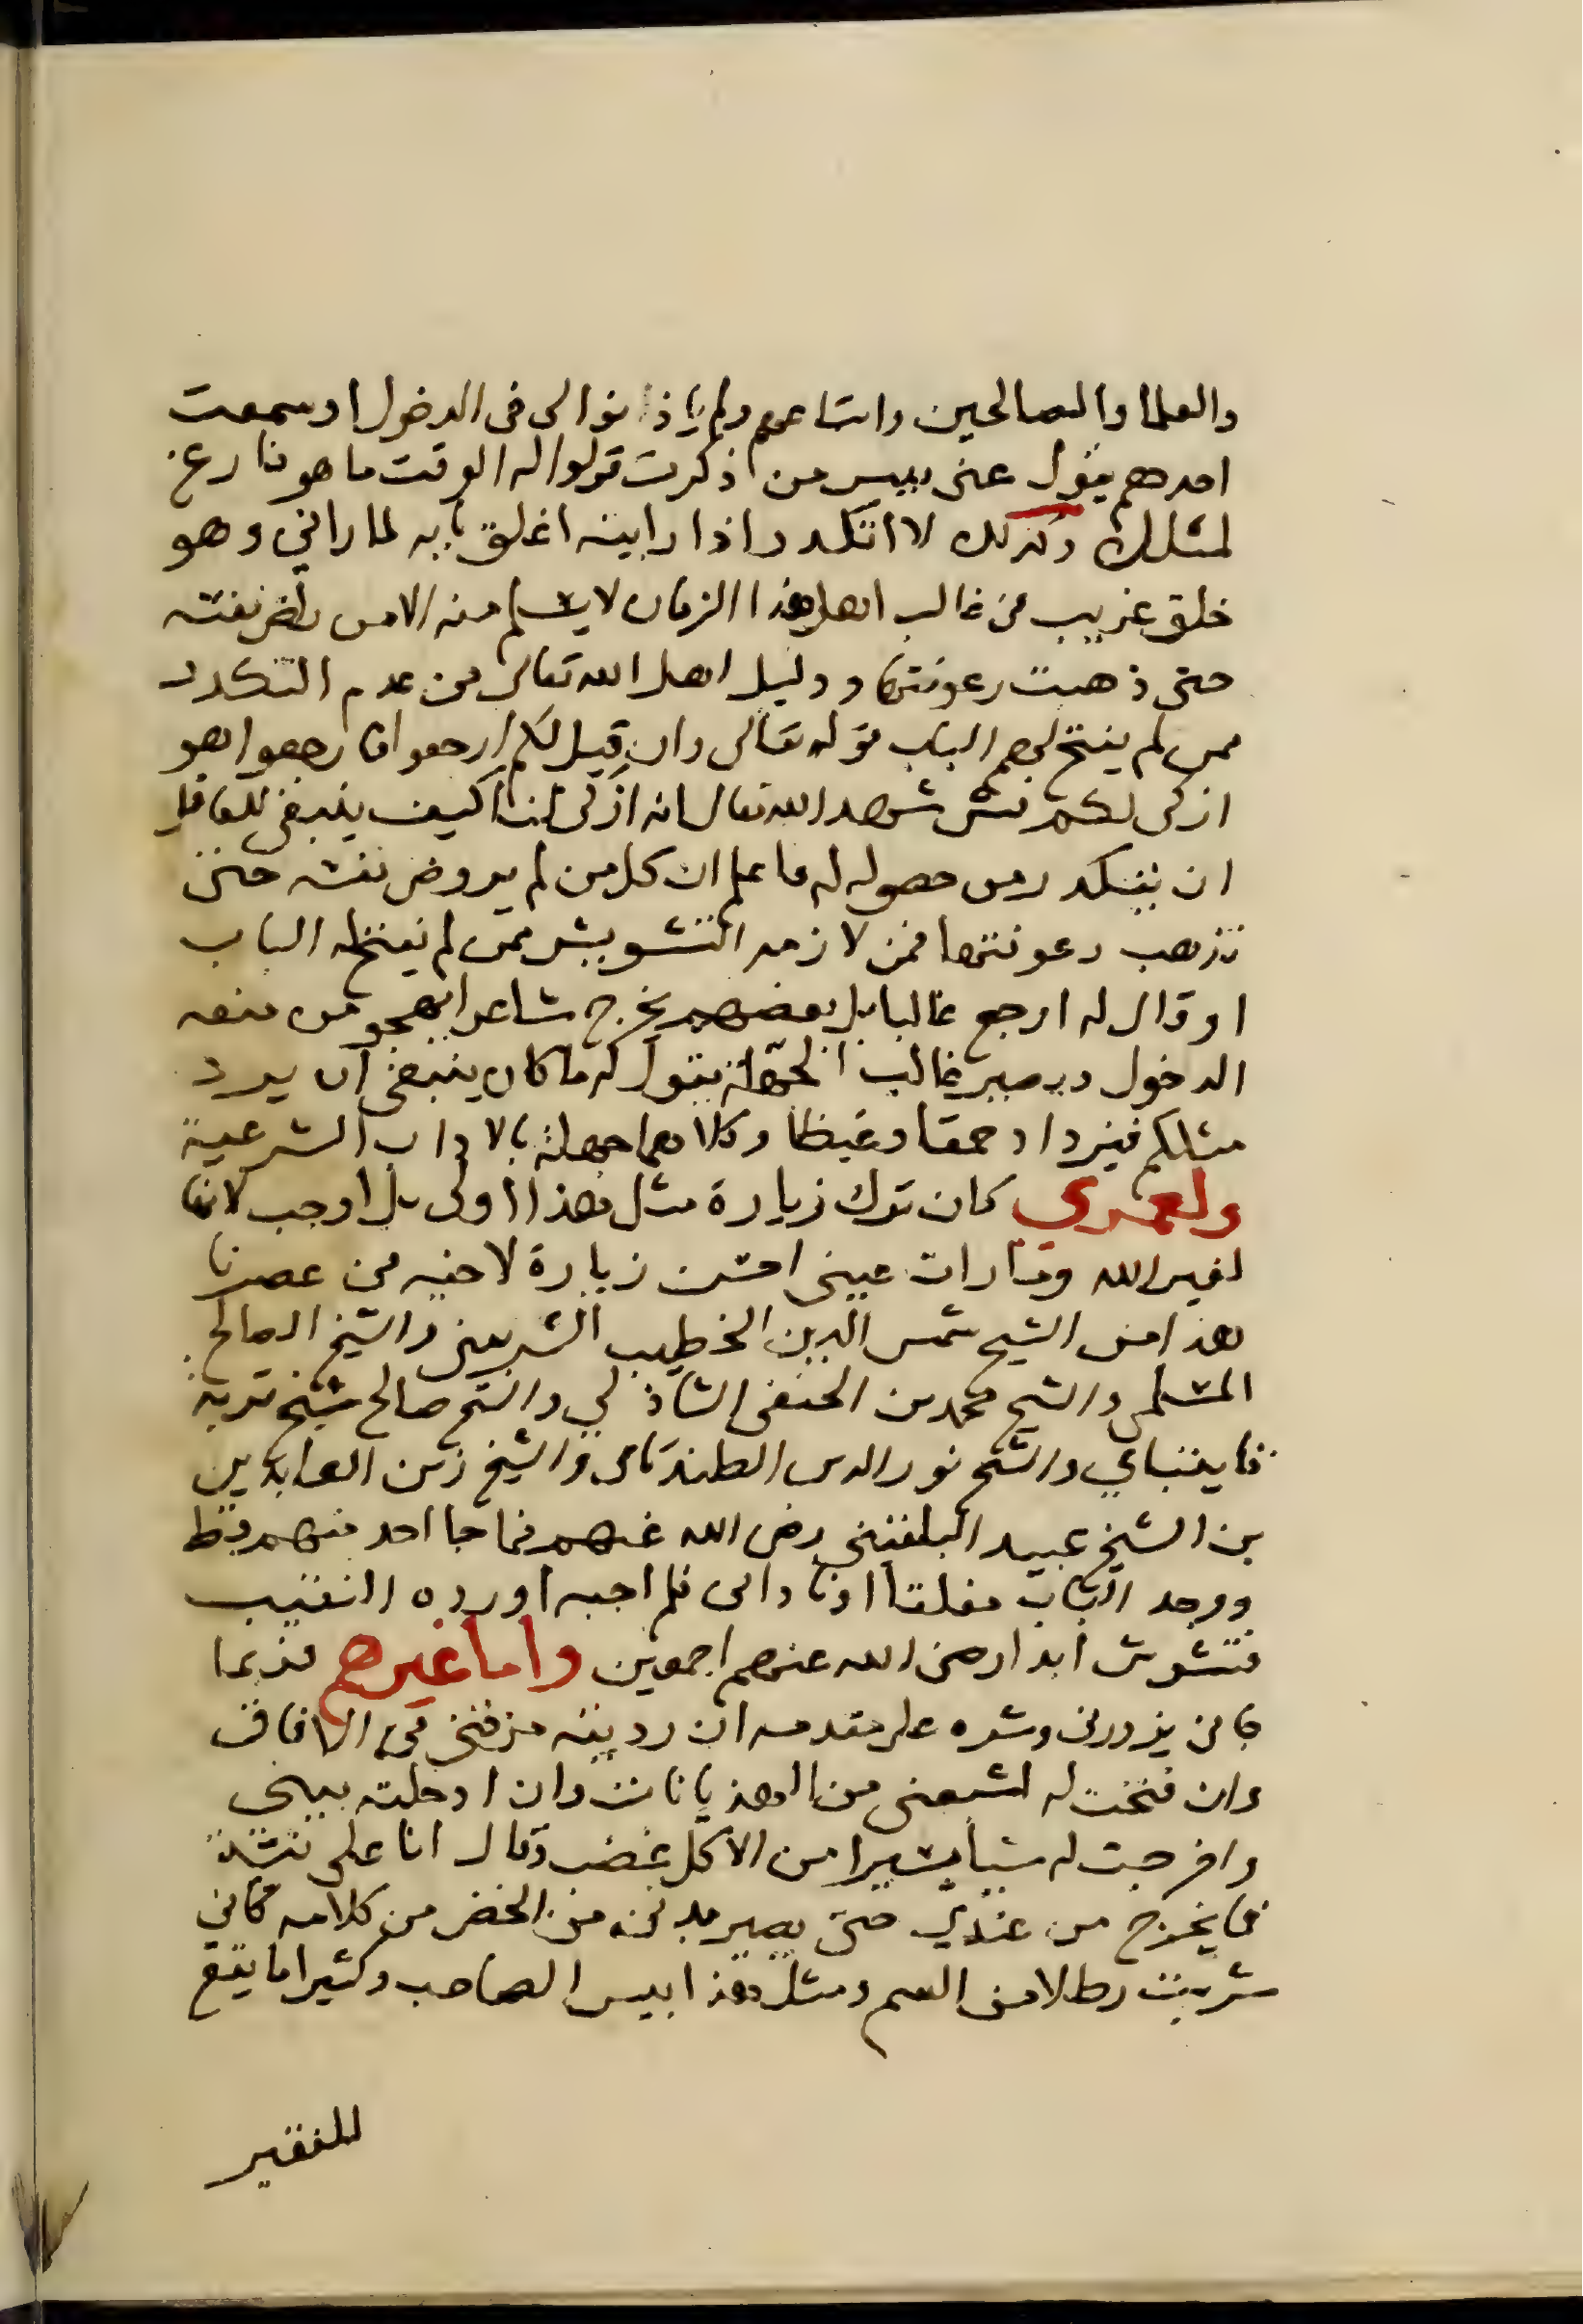 والعلما والصالحين واتباعهم ولم ياذنوا لى فى الدخول او سمعت
احدهم يقول عنى بيس من ذكرت قولوا له الوقت ما هو فارغ
لمثلك وكذلك لا اتكدر اذا رايته اغلق بابه لما راني وهو
خلق غريب فى غالب اهل هذا الزمان لا يسلم منه الا من راض نفسه
حتى ذهبت رعونتها ودليل اهل الله تعالى فى عدم التكدر
ممن لم يفتح لهم الباب قوله تعالى وان قيل لكم ارجعوا فارجعوا هو
ازكى لكم فشى شهد الله تعالى انه ازكى لنا كيف ينبغى للعاقل
ان يتكدر من حصوله له فاعلم ان كل من لم يروض نفسه حتى
تذهب رعونتها فمن لازمه التشويش ممن لم يفتح له الباب
او قال له ارجع غالبا بل بعضهم يخرج شاعرا يهجو من منعه
الدخول ويصير غالب الجهلة يقول له ما كان ينبغى ان يرد
مثلكم فيزداد حمقا وغيظا وكلاهما جهلة بالاداب الشرعية
ولعمري كان ترك زيارة مثل هذا اولى بل اوجب لانها
لغير الله وما رات عينى احسن زيارة لاخيه فى عصرنا
هذا من الشيخ شمس الدين الخطيب الشربينى والشيخ الصالح
السلمى والشيخ محمد بن الحنفى الشاذلي والشيخ صالح شيخ تربة
قايتباي والشيخ نور الدين الطندتاى والشيخ زين العابدين
بن الشيخ عبيد البلقينى رضى الله عنهم فما جا احد منهم قط
ووجد الباب مغلقا او نادانى فلم اجبه او رده النقيب
فتشوش ابدا رضى الله عنهم اجمعين واما غيرهم فربما
جانى يزورنى وشره على مقدمه ان رديته مزقنى فى الافاق
وان فتحت له اشبعنى من الهذيانات وان ادخلته بيتي
واخرجت له شيا يسيرا من الاكل غضب وقال انا على نشة
فما يخرج من عندي حتى يصير بدنى من الحضر من كلامه كانى
شربت رطلا من السم ومثل هذا بيس الصاحب وكثيرا ما يقع
للفقير